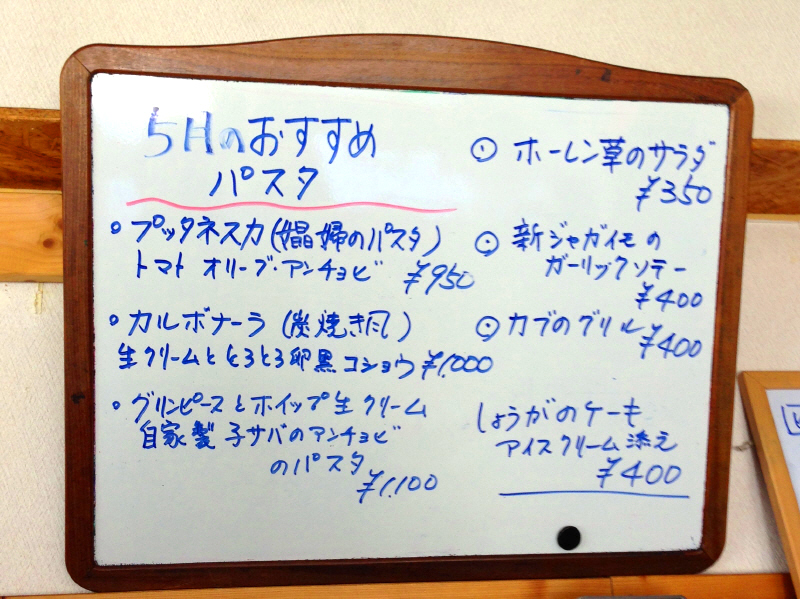 5月のおすすめ
パスタ
プッタネスカ(娼婦のパスタ)
トマト オリーブ・アンチョビ ¥950
カルボナーラ (炭焼き風)
生クリームととろとろ卵黒コショウ ¥1,000
グリンピースとホイップ生クリーム
自家製 子サバのアンチョビ
のパスタ
¥1,100
ホーレン草のサラダ
¥350
新ジャガイモの
ガーリックソテー
¥400
カブのグリル ¥400
しょうがのケーキ
アイスクリーム添え
¥400